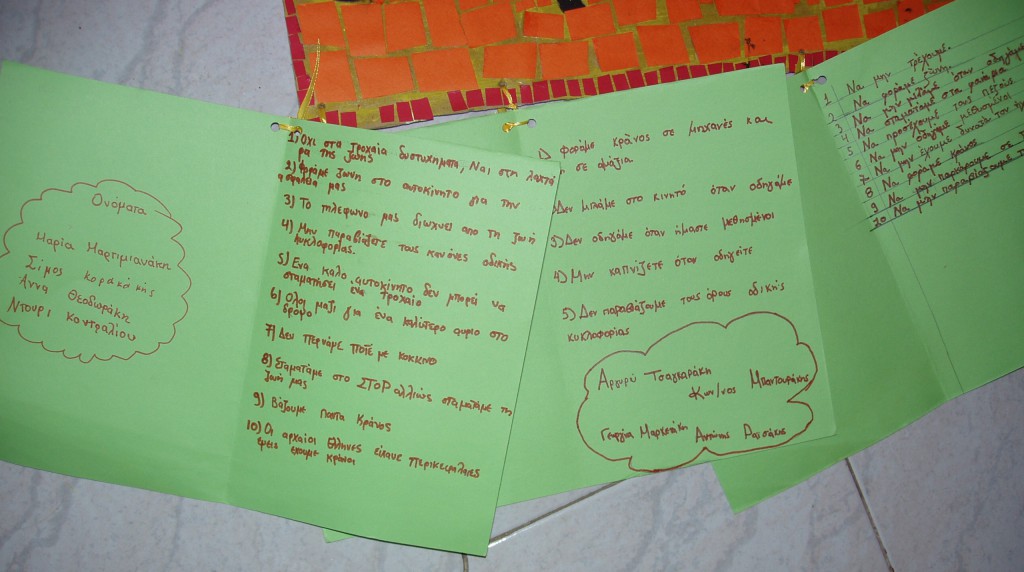 Ονόματα
Μαρία Μαριμιανάκη
Σίμος Κορακάκης
Άννα Θεοδωράκη
Ντουρι Κοντραλιου
1) Όχι στα τροχαία δυστυχηματα, Ναι στη λαχτά
ρα της ζωής
2) Φοράμε ζωνη στο αυτοκινητο για την
ασφαλεια μας
3) Το τηλεφωνο μας διωχνει απο τη ζωή
4) Μην παραβιάζετε τους κανόνες οδικής
κυκλοφορίας.
5) Ενα καλο αυτοκίνητο δεν μπορεί να
σταματησει ένα τροχαίο
6) Ολοι μαζι για ένα καλύτερο αυριο στο
δρομο
7) Δεν περνάμε ποτέ με κοκκινο
8) Σταματάμε στο ΣΤΟΡ αλλιώς σταματάμε τη
ζωή μας
9) Βάζουμε παντα κράνος
10) Οι αρχαίοι Ελληνες είχανε περικεφαλαιες
εμεις εχουμε κράνοι
φοράμε κράνος σε μηχανές και
σε αμάξια
Δεν μιλάμε στο κινητό όταν οδηγάμε
3) Δεν οδηγάμε όταν ήμαστε μεθησμένοι
4) Μην καπνίζετε όταν οδηγείτε
5) Δεν παραβιάζουμε τους όρους οδικής
κυκλοφορίας
Αργυρώ Τσαγκαράκη
Κων/νος Μπαντουράκης
Γεωργία Μαρκετάκη Αντώνης
1 Να μην τρέχουμε.
2 Να φοράμε ζώνη.
3 Να μην μιλάμε όταν οδηγάμε
4 Να σταματάμε στα φανάρια
5 Να προσέχουμε τους πεζούς
6 Να μην οδηγάμε μεθυσμένοι
7 Να μην έχουμε δυνατά τον
8 Να φοράμε κράνος
9 Να μην παρκάρουμε σε
10 Να μην παραβιάζουμε